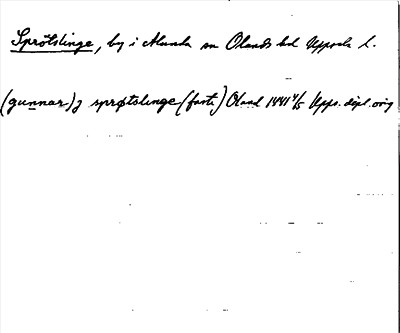 Sprötslinge, by i Alunda sn Olands hd Uppsala l.
(gunnar) j sprøtslinge (fasti) Oland 1441 4/5 Upps. dipl. orig